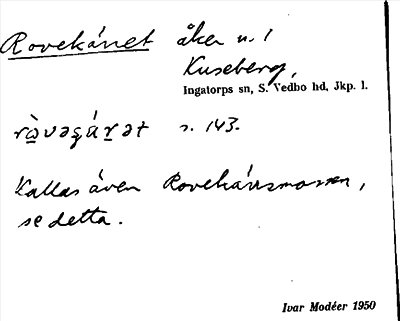 Rovekáret åker n. 1
Kuseberg,
Ingatorps sn, S. Vedbo hd, Jkp. l.
s. 143.
Kallas även Rovekärrsmossen,
se detta.
Ivar Modéer 1950